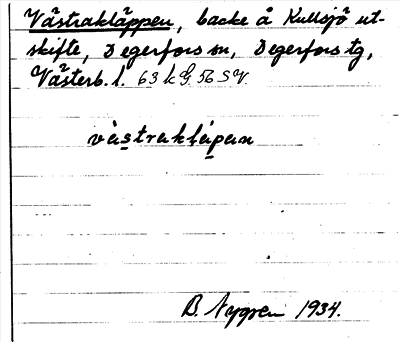 Västrakläppen, backe å Kullsjö ut-
skifte, Degerfors sn, Degerfors tg,
Västerb. l. 63 k G. 56 SV.
västraklä̀pan
B. Nygren 1934.